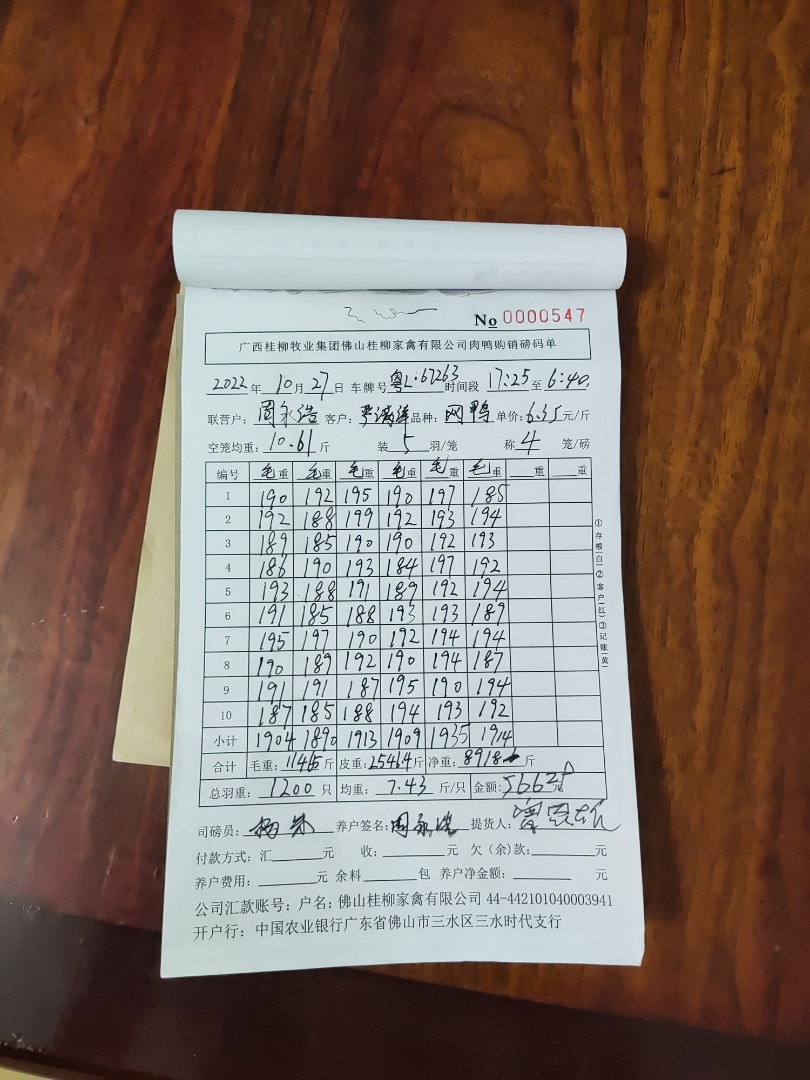 No 0000547
广西桂柳牧业集团佛山桂柳家禽有限公司肉鸭购销磅码单
2022年10月27日 车牌号 粤L·67263 时间段 17:25至6:40
联营户：周永浩 客户： 品种： 鸭 单价：6.35元/斤
空笼均重：10.61斤 装5羽/笼 称4笼/磅
编号 毛重 毛重 毛重 毛重 毛重 毛重 重 重
1 190 192 195 190 197 185
2 192 188 199 192 193 194
3 189 185 190 190 192 193
4 186 190 193 184 197 192
5 193 188 191 189 192 194
6 191 185 188 193 193 189
7 195 197 190 192 194 194
8 190 189 192 190 194 187
9 191 191 187 195 190 194
10 187 185 188 194 193 192
小计 1904 1890 1913 1909 1935 1914
合计 毛重：11465斤 皮重：2546.4斤 净重：8918 斤
总羽重：1200只 均重：7.43斤/只 金额： 元
司磅员： 养户签名：周永浩 提货人：
付款方式：汇 元 收： 元 欠（余）款： 元
养户费用： 元 余料 包 养户净金额： 元
公司汇款账号：户名：佛山桂柳家禽有限公司 44-442101040003941
开户行：中国农业银行广东省佛山市三水区三水时代支行
①存根(白)②客户(红)③记账(黄)